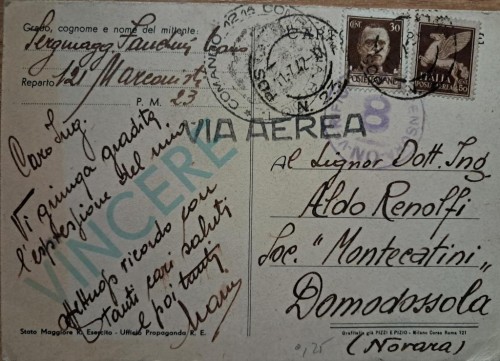 Grado, cognome e nome del mittente:
Sergmagg
Reparto 121 Marconisti
P. M. 23
VIA AEREA
VINCERE
Caro Ing.
Vi giunga gradita
l'espressione del mio
affettuoso ricordo con
tanti cari saluti
e poi tanti
30
POSTE ITALIANE
ITALIA
50
Al Signor Dott. Ing
Aldo Renolfi
Soc. "Montecatini"
Domodossola
(Novara)
Stato Maggiore R. Esercito - Ufficio Propaganda R. E.
Grafitalia già PIZZI & PIZIO - Milano Corso Roma 121